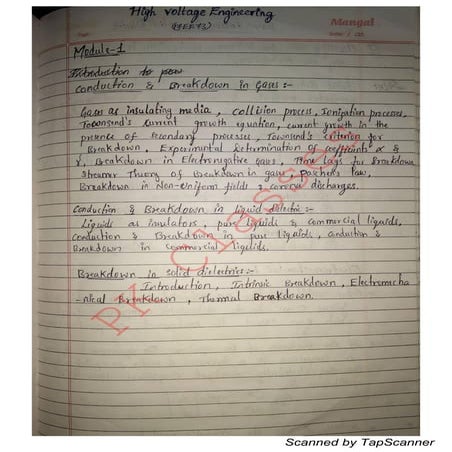 High Voltage Engineering
(18EE73)
Mangal
Module-1
Introduction to
Conduction & Breakdown in Gases :-
Gases as insulating media, collision process, Ionization processes,
Townsend's current growth equation, current growth in the
presence of secondary processes, Townsend's criterion for
Breakdown, Experimental Determination of coefficients α &
γ, Breakdown in Electronegative Gases, Time lags for Breakdown
Streamer Theory of Breakdown in gases Paschen's Law,
Breakdown in Non-Uniform fields & corona discharges.
Conduction & Breakdown in liquid dielectric:-
Liquids as insulators, pure liquids & commercial liquids,
conduction & Breakdown in pure liquids, conduction &
Breakdown in commercial liquids.
Breakdown in solid dielectrics:-
Introduction, Intrinsic Breakdown, Electromecha
-nical Breakdown, Thermal Breakdown.
Classes
Scanned by TapScanner